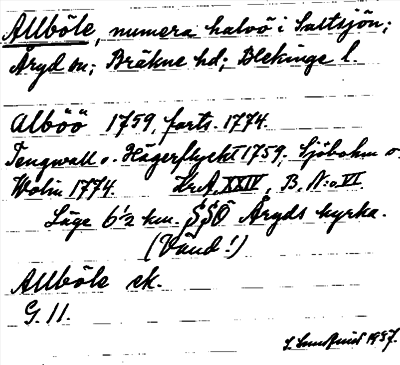 Allböle, numera halvö i Saltsjön;
Åryd sn; Bräkne hd; Blekinge l.
Alböö 1759, forts. 1774.
Tengwall o. Hägerflyckt 1759. Sjöbohm o.
Wolin 1774. Kr.A. XXIV, B, N:o VI
Läge 6 1/2 km. SSÖ Åryds kyrka.
(Vänd!)
Allböle ek.
G. 11.
1937.